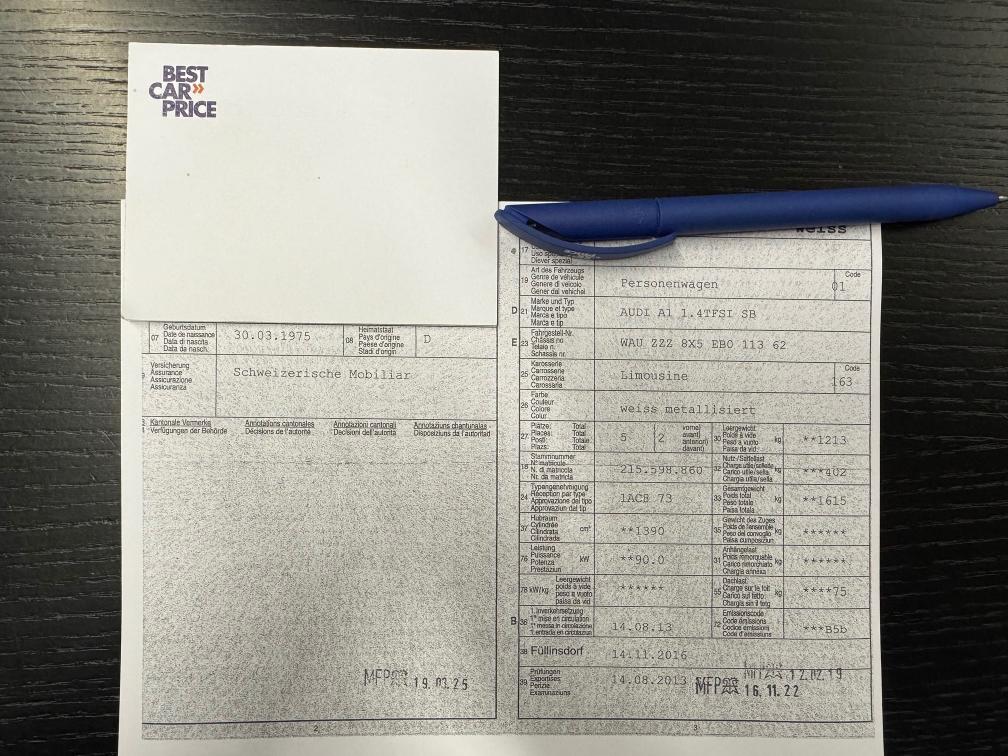 BEST
CAR»
PRICE
07 Geburtsdatum
Date de naissance
Data di nascita
Data da nasch.
30.03.1975
08 Heimatstaat
Pays d'origine
Paese d'origine
Stadi d'origin
D
Versicherung
Assurance
Assicurazione
Assicuranza
Schweizerische Mobiliar
Kantonale Vermerke
Verfügungen der Behörde
Annotations cantonales
Décisions de l'autorité
Annotazioni cantonali
Decisioni dell'autorità
Annotaziuns chantunalas
Disposiziuns da l'autoritad
MFP 19.03.25
2
weiss
17
Uso speciale
Diever spezial
19 Art des Fahrzeugs
Genre de véhicule
Genere di veicolo
Gener dal vehichel
Personenwagen
Code
01
D 21 Marke und Typ
Marque et type
Marca e tipo
Marca e tip
AUDI A1 1.4TFSI SB
E 23 Fahrgestell-Nr.
Châssis no
Telaio n.
Schassis nr.
WAU ZZZ 8X5 EB0 113 62
25 Karosserie
Carrosserie
Carrozzeria
Carossaria
Limousine
Code
163
26 Farbe
Couleur
Colore
Colur
weiss metallisiert
27 Plätze: Total
Places: Total
Posti: Totale
Plazs: Total
5
2
vorne)
avant)
anteriori)
davant)
30 Leergewicht
Poids à vide
Peso a vuoto
Paisa da vid
kg
**1213
18 Stammnummer
N° matricule
N. di matricola
Nr. da matricla
215.598.860
32 Nutz-/Sattellast
Charge utile/sellette
Carico utile/sella
Chargia utila/sella
kg
***402
24 Typengenehmigung
Réception par type
Approvazione del tipo
Approvaziun dal tip
1AC8 73
33 Gesamtgewicht
Poids total
Peso totale
Paisa totala
kg
**1615
37 Hubraum
Cylindrée
Cilindrata
Cilindrada
cm³
**1390
35 Gewicht des Zuges
Poids de l'ensemble
Peso del convoglio
Paisa cumposiziun
kg
******
76 Leistung
Puissance
Potenza
Prestaziun
kW
**90.0
31 Anhängelast
Poids remorquable
Carico rimorchiato
Chargia annexa
kg
******
78 kW/kg
Leergewicht
poids à vide
peso a vuoto
paisa da vid
******
55 Dachlast
Charge sur le toit
Carico sul tetto
Chargia sin il tetg
kg
****75
B 36 1. Inverkehrsetzung
1re mise en circulation
1a messa in circolazione
1. entrada en circulaziun
14.08.13
72 Emissionscode
Code émissions
Codice emissioni
Code d'emissiuns
***B5b
38 Füllinsdorf
14.11.2016
39 Prüfungen
Expertises
Perizie
Examinaziuns
14.08.2013
MFP 12.02.19
MFP 16.11.22
3